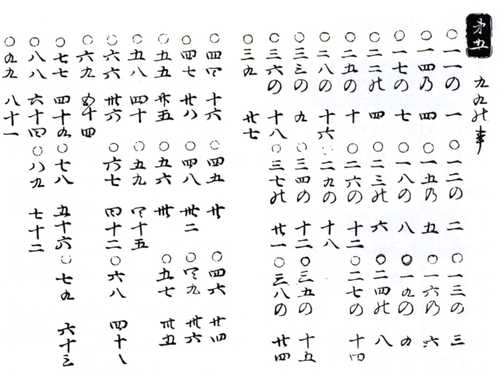 第五 九九の事
○一一の 一 ○一二の 二 ○一三の 三
○一四の 四 ○一五の 五 ○一六の 六
○一七の 七 ○一八の 八 ○一九の 九
○二二の 四 ○二三の 六 ○二四の 八
○二五の 十 ○二六の 十二 ○二七の 十四
○二八の 十六 ○二九の 十八
○三三の 九 ○三五の 十五
○三六の 十八 ○三七の 廿一 ○三八の 廿四
○三九 廿七
○四四 十六 ○四五 廿 ○四六 廿四
○四七 廿八 ○四八 卅二 ○四九 卅六
○五五 廿五 ○五六 卅 ○五七 卅五
○五八 四十 ○五九 四十五
○六六 卅六 ○六七 四十二 ○六八 四十八
○六九 五十四
○七七 四十九 ○七八 五十六 ○七九 六十三
○八八 六十四 ○八九 七十二
○九九 八十一